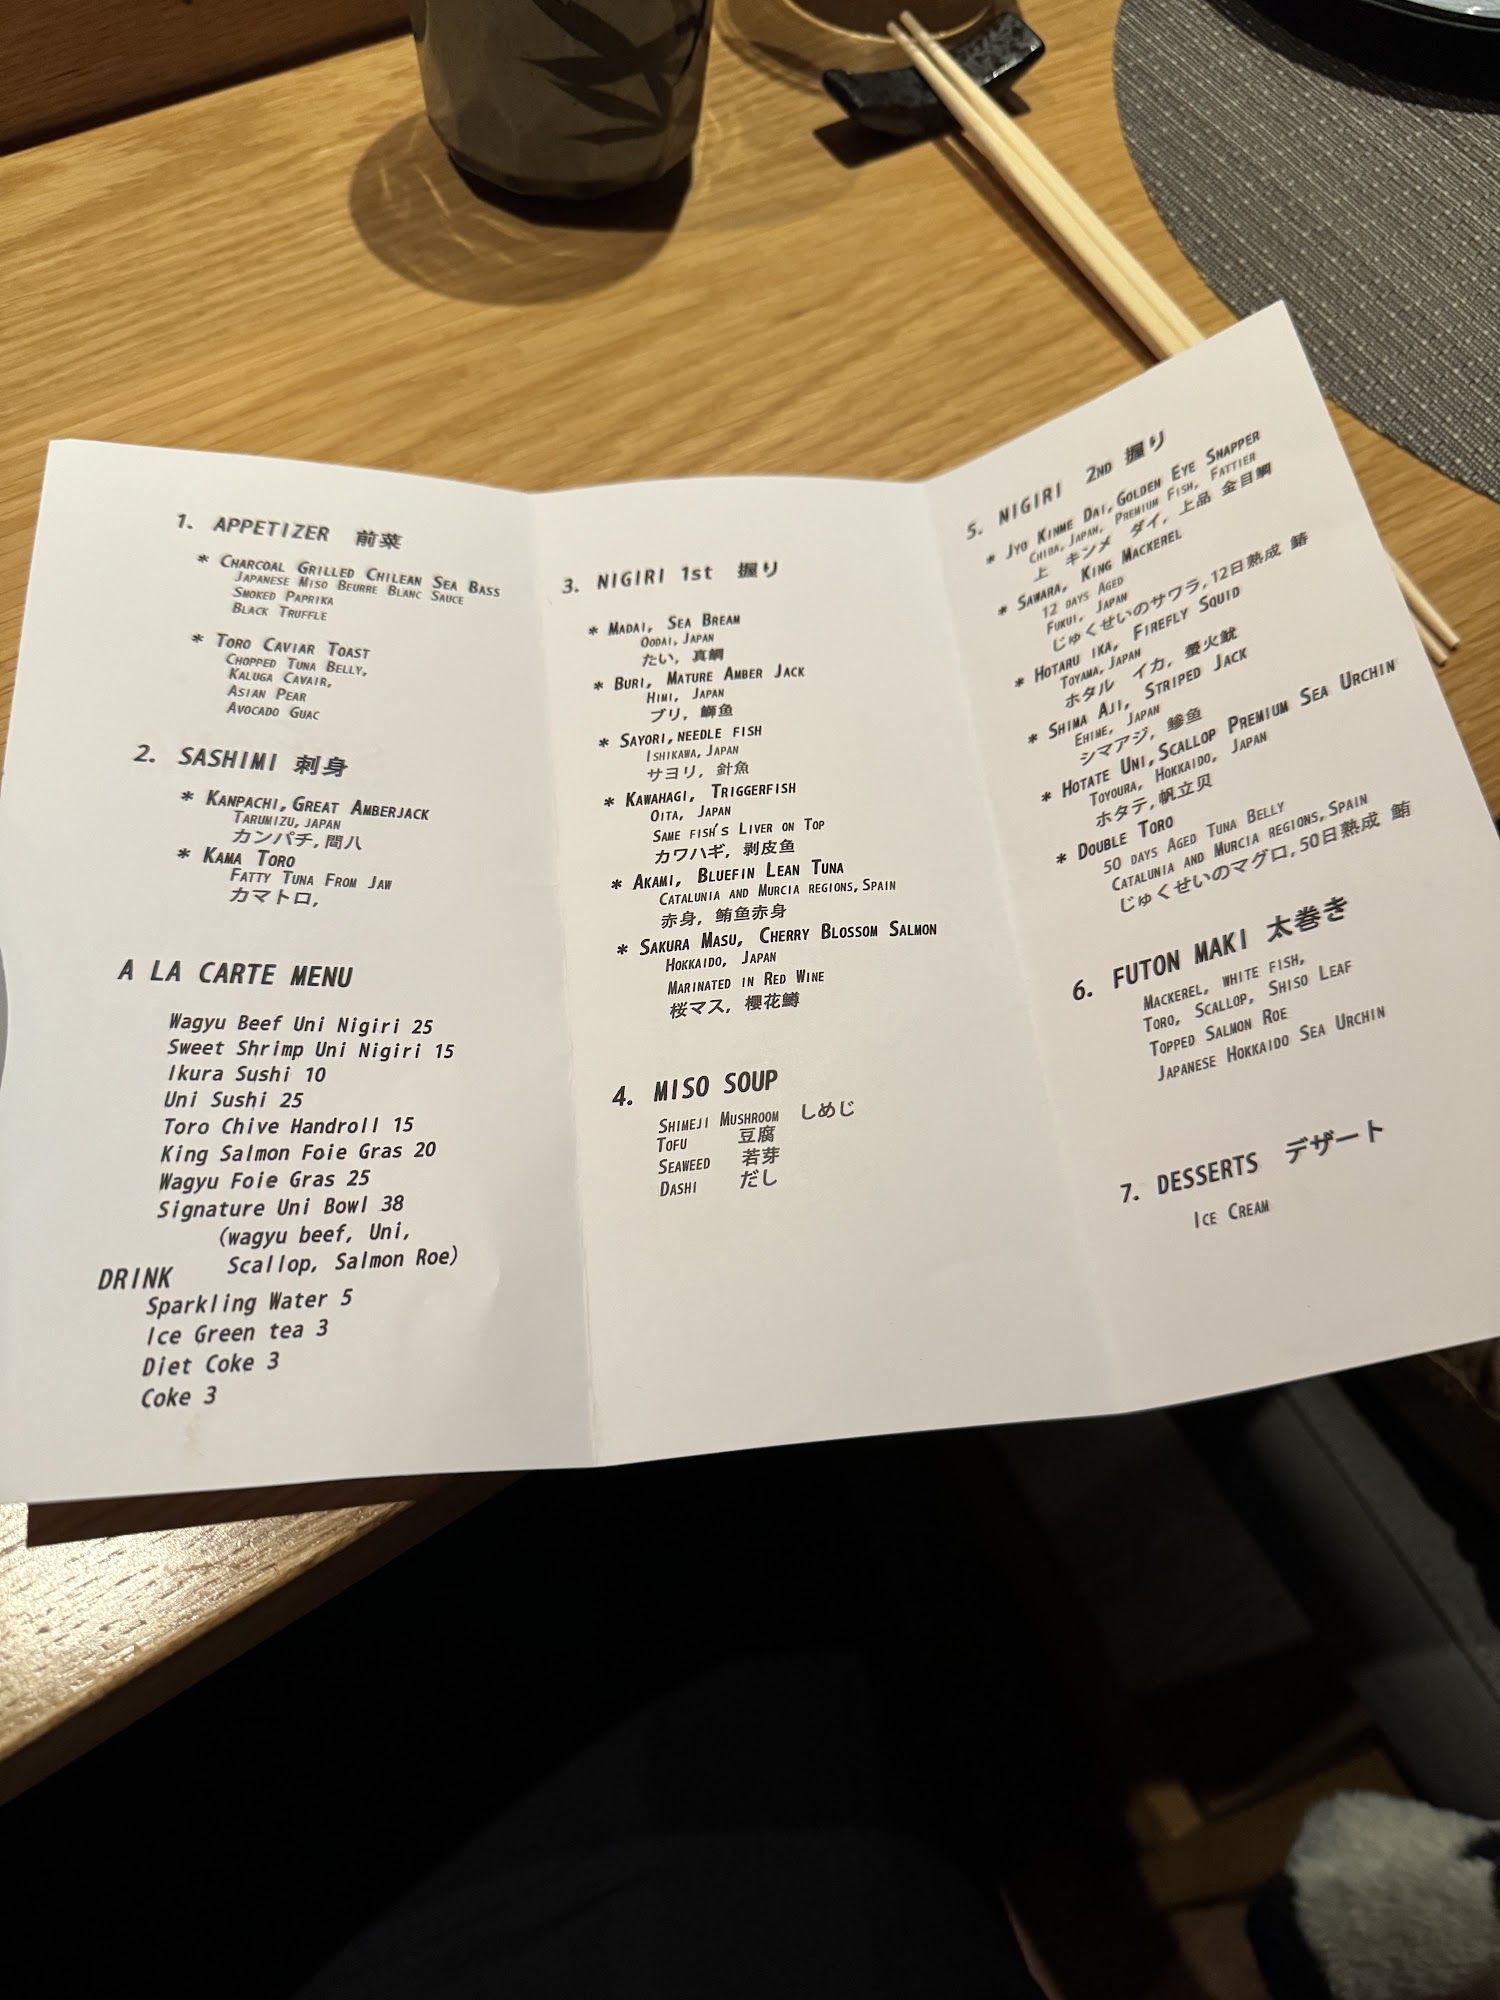 1. APPETIZER 前菜
* CHARCOAL GRILLED CHILEAN SEA BASS
JAPANESE MISO BEURRE BLANC SAUCE
SMOKED PAPRIKA
BLACK TRUFFLE
* TORO CAVIAR TOAST
CHOPPED TUNA BELLY,
KALUGA CAVAIR,
ASIAN PEAR
AVOCADO GUAC
2. SASHIMI 刺身
* KANPACHI, GREAT AMBERJACK
TARUMIZU, JAPAN
カンパチ, 間八
* KAMA TORO
FATTY TUNA FROM JAW
カマトロ,
A LA CARTE MENU
Wagyu Beef Uni Nigiri 25
Sweet Shrimp Uni Nigiri 15
Ikura Sushi 10
Uni Sushi 25
Toro Chive Handroll 15
King Salmon Foie Gras 20
Wagyu Foie Gras 25
Signature Uni Bowl 38
(wagyu beef, Uni,
Scallop, Salmon Roe)
DRINK
Sparkling Water 5
Ice Green tea 3
Diet Coke 3
Coke 3
3. NIGIRI 1st 握り
* MADAI, SEA BREAM
OODAI, JAPAN
たい, 真鯛
* BURI, MATURE AMBER JACK
HIMI, JAPAN
ブリ, 鰤魚
* SAYORI, NEEDLE FISH
ISHIKAWA, JAPAN
サヨリ, 針魚
* KAWAHAGI, TRIGGERFISH
OITA, JAPAN
SAME FISH'S LIVER ON TOP
カワハギ, 剥皮魚
* AKAMI, BLUEFIN LEAN TUNA
CATALUNIA AND MURCIA REGIONS, SPAIN
赤身, 鮪鱼赤身
* SAKURA MASU, CHERRY BLOSSOM SALMON
HOKKAIDO, JAPAN
MARINATED IN RED WINE
桜マス, 櫻花鱒
4. MISO SOUP
SHIMEJI MUSHROOM しめじ
TOFU 豆腐
SEAWEED 若芽
DASHI だし
5. NIGIRI 2ND 握り
* JYO KINME DAI, GOLDEN EYE SNAPPER
CHIBA, JAPAN, PREMIUM FISH, FATTIER
上 キンメ ダイ, 上品 金目鯛
* SAWARA, KING MACKEREL
12 DAYS AGED
FUKUI, JAPAN
じゅくせいのサワラ, 12日熟成 鰆
* HOTARU IKA, FIREFLY SQUID
TOYAMA, JAPAN
ホタル イカ, 螢火魷
* SHIMA AJI, STRIPED JACK
EHIME, JAPAN
シマアジ, 鰺魚
* HOTATE UNI, SCALLOP PREMIUM SEA URCHIN
TOYOURA, HOKKAIDO, JAPAN
ホタテ, 帆立贝
* DOUBLE TORO
50 DAYS AGED TUNA BELLY
CATALUNIA AND MURCIA REGIONS, SPAIN
じゅくせいのマグロ, 50日熟成 鮪
6. FUTON MAKI 太巻き
MACKEREL, WHITE FISH,
TORO, SCALLOP, SHISO LEAF
TOPPED SALMON ROE
JAPANESE HOKKAIDO SEA URCHIN
7. DESSERTS デザート
ICE CREAM